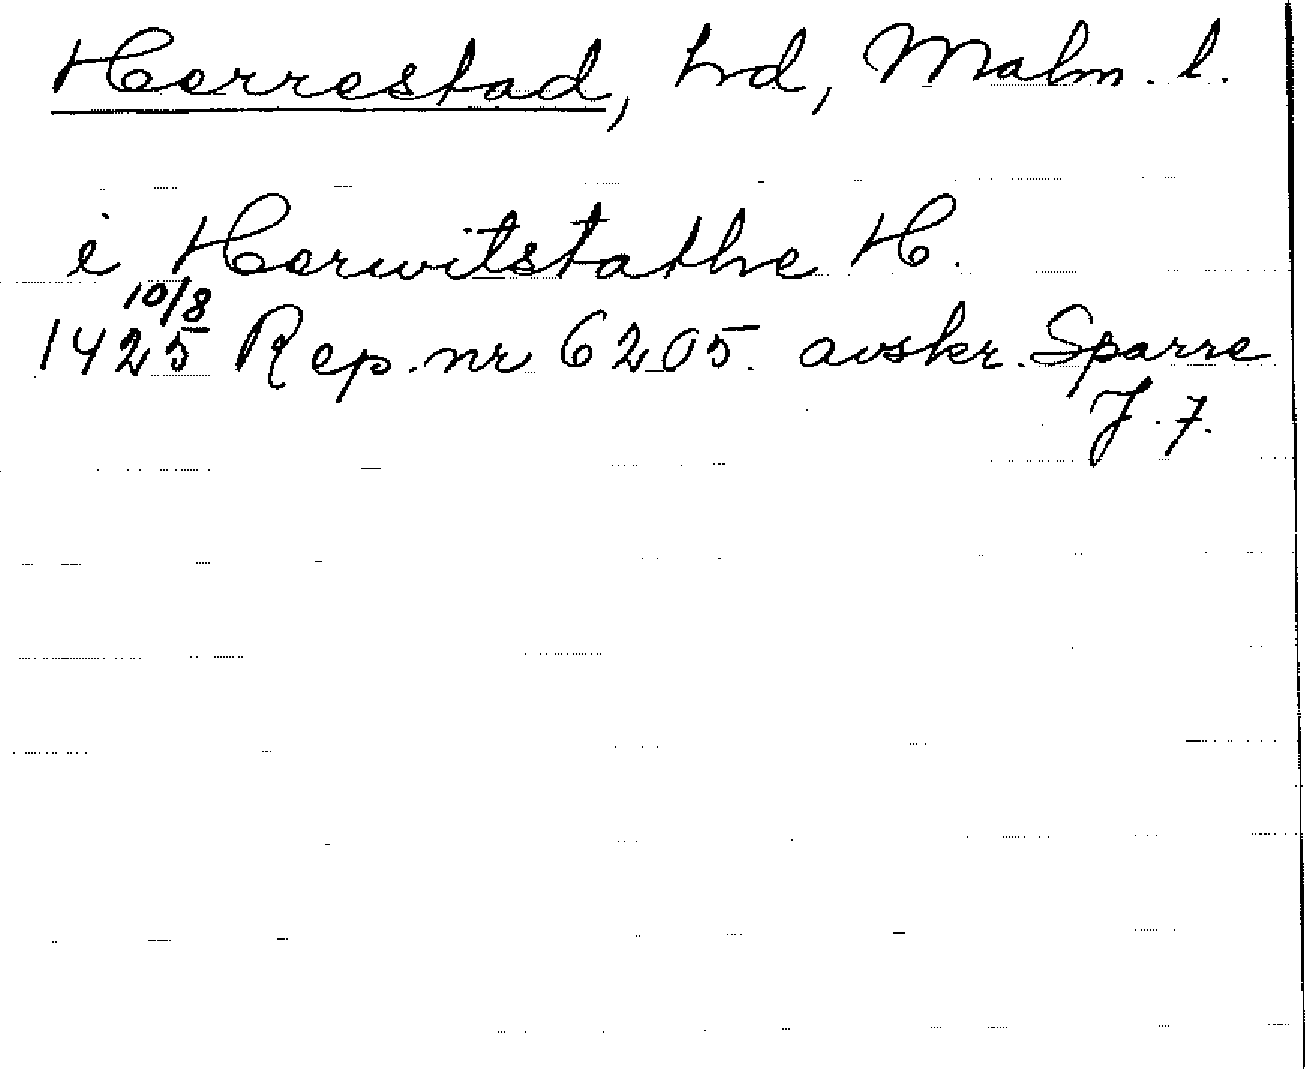 Herrestad, hd, Malm. l.
i Herwitstathe H.
10/8
1425 Rep. nr 6205. avskr. Sparre
J. F.